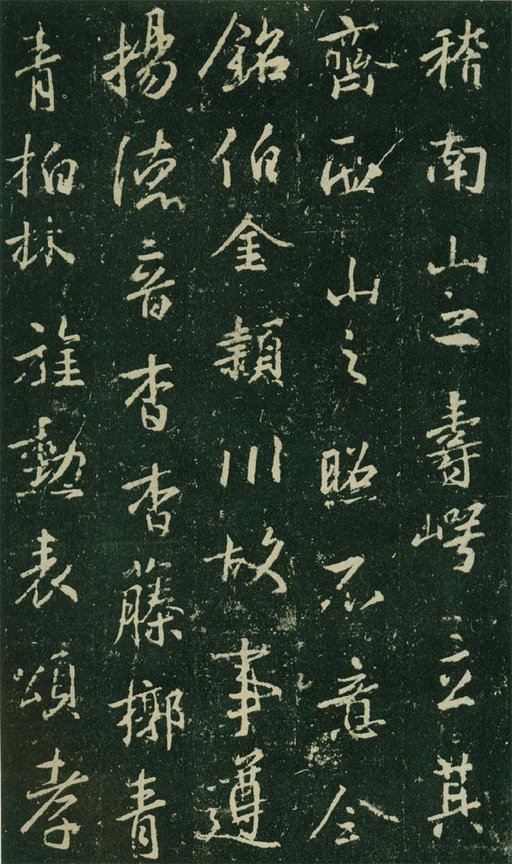 稽南山之壽崿立其
齊山之照不意今
銘伯金頴川故事遵
揚德音杳杳藤槨青
青柏林旌勳表頌孝